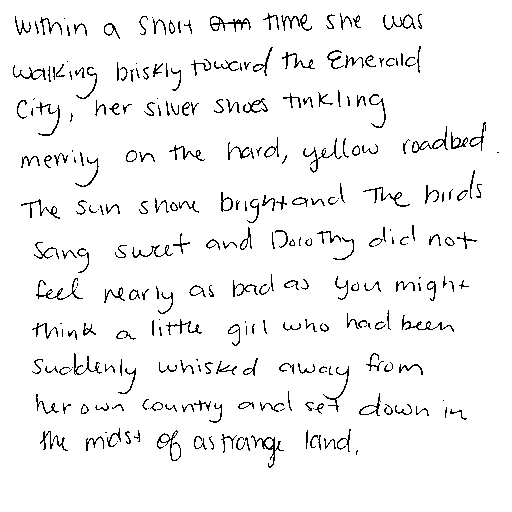 Within a short time she was
walking briskly toward the Emerald
City, her silver shoes tinkling
merrily on the hard, yellow roadbed.
The sun shone bright and The birds
sang sweet and Dorothy did not
feel nearly as bad as you might
think a little girl who had been
suddenly whisked away from
her own country and set down in
the midst of a strange land.